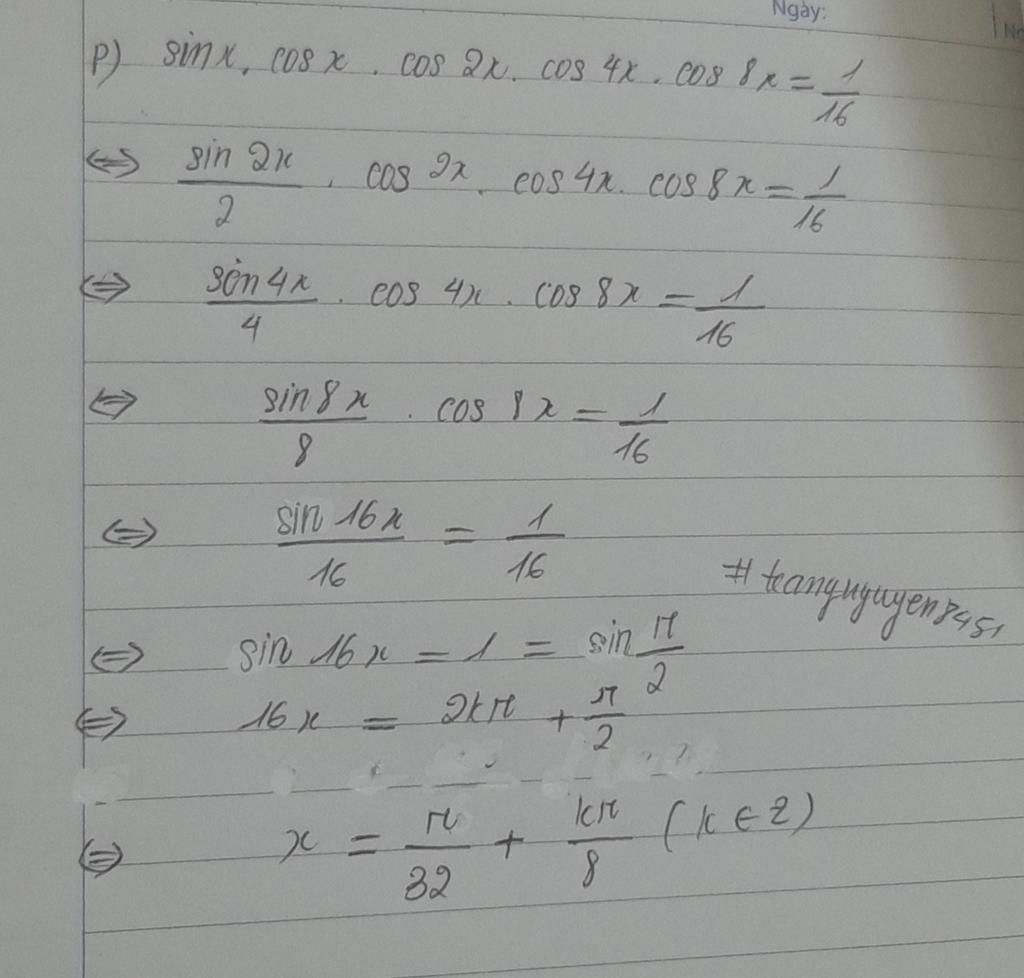 Ngày:
No
p) sinx. cosx. cos 2x. cos 4x. cos 8x = 1/16
⇔ sin 2x/2 . cos 2x. cos 4x. cos 8x = 1/16
⇔ sin 4x/4 . cos 4x. cos 8x = 1/16
⇔ sin 8x/8 . cos 8x = 1/16
⇔ sin 16x/16 = 1/16
#teanguyuyen8451
⇔ sin 16x = 1 = sin π/2
⇔ 16x = 2kπ + π/2
⇔ x = π/32 + kπ/8 (k ∈ Z)